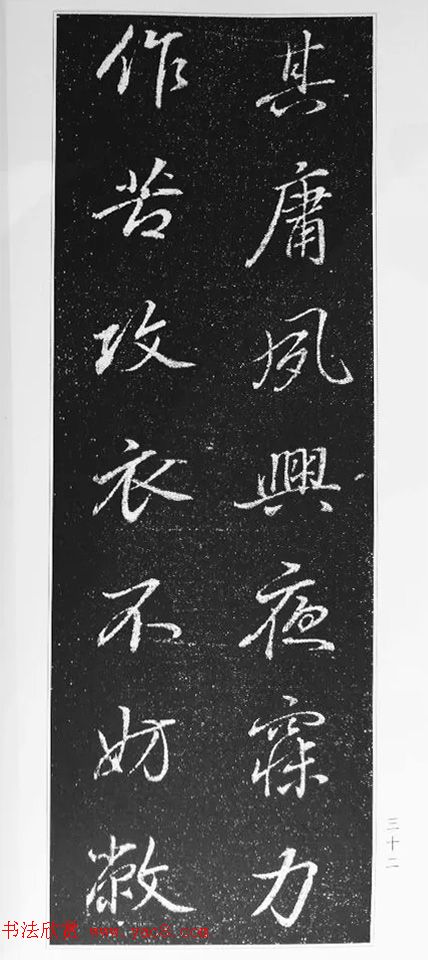 其庸夙興夜寐力
作苦攻衣不妨敝
三十二
书法欣赏 www.yac8.com